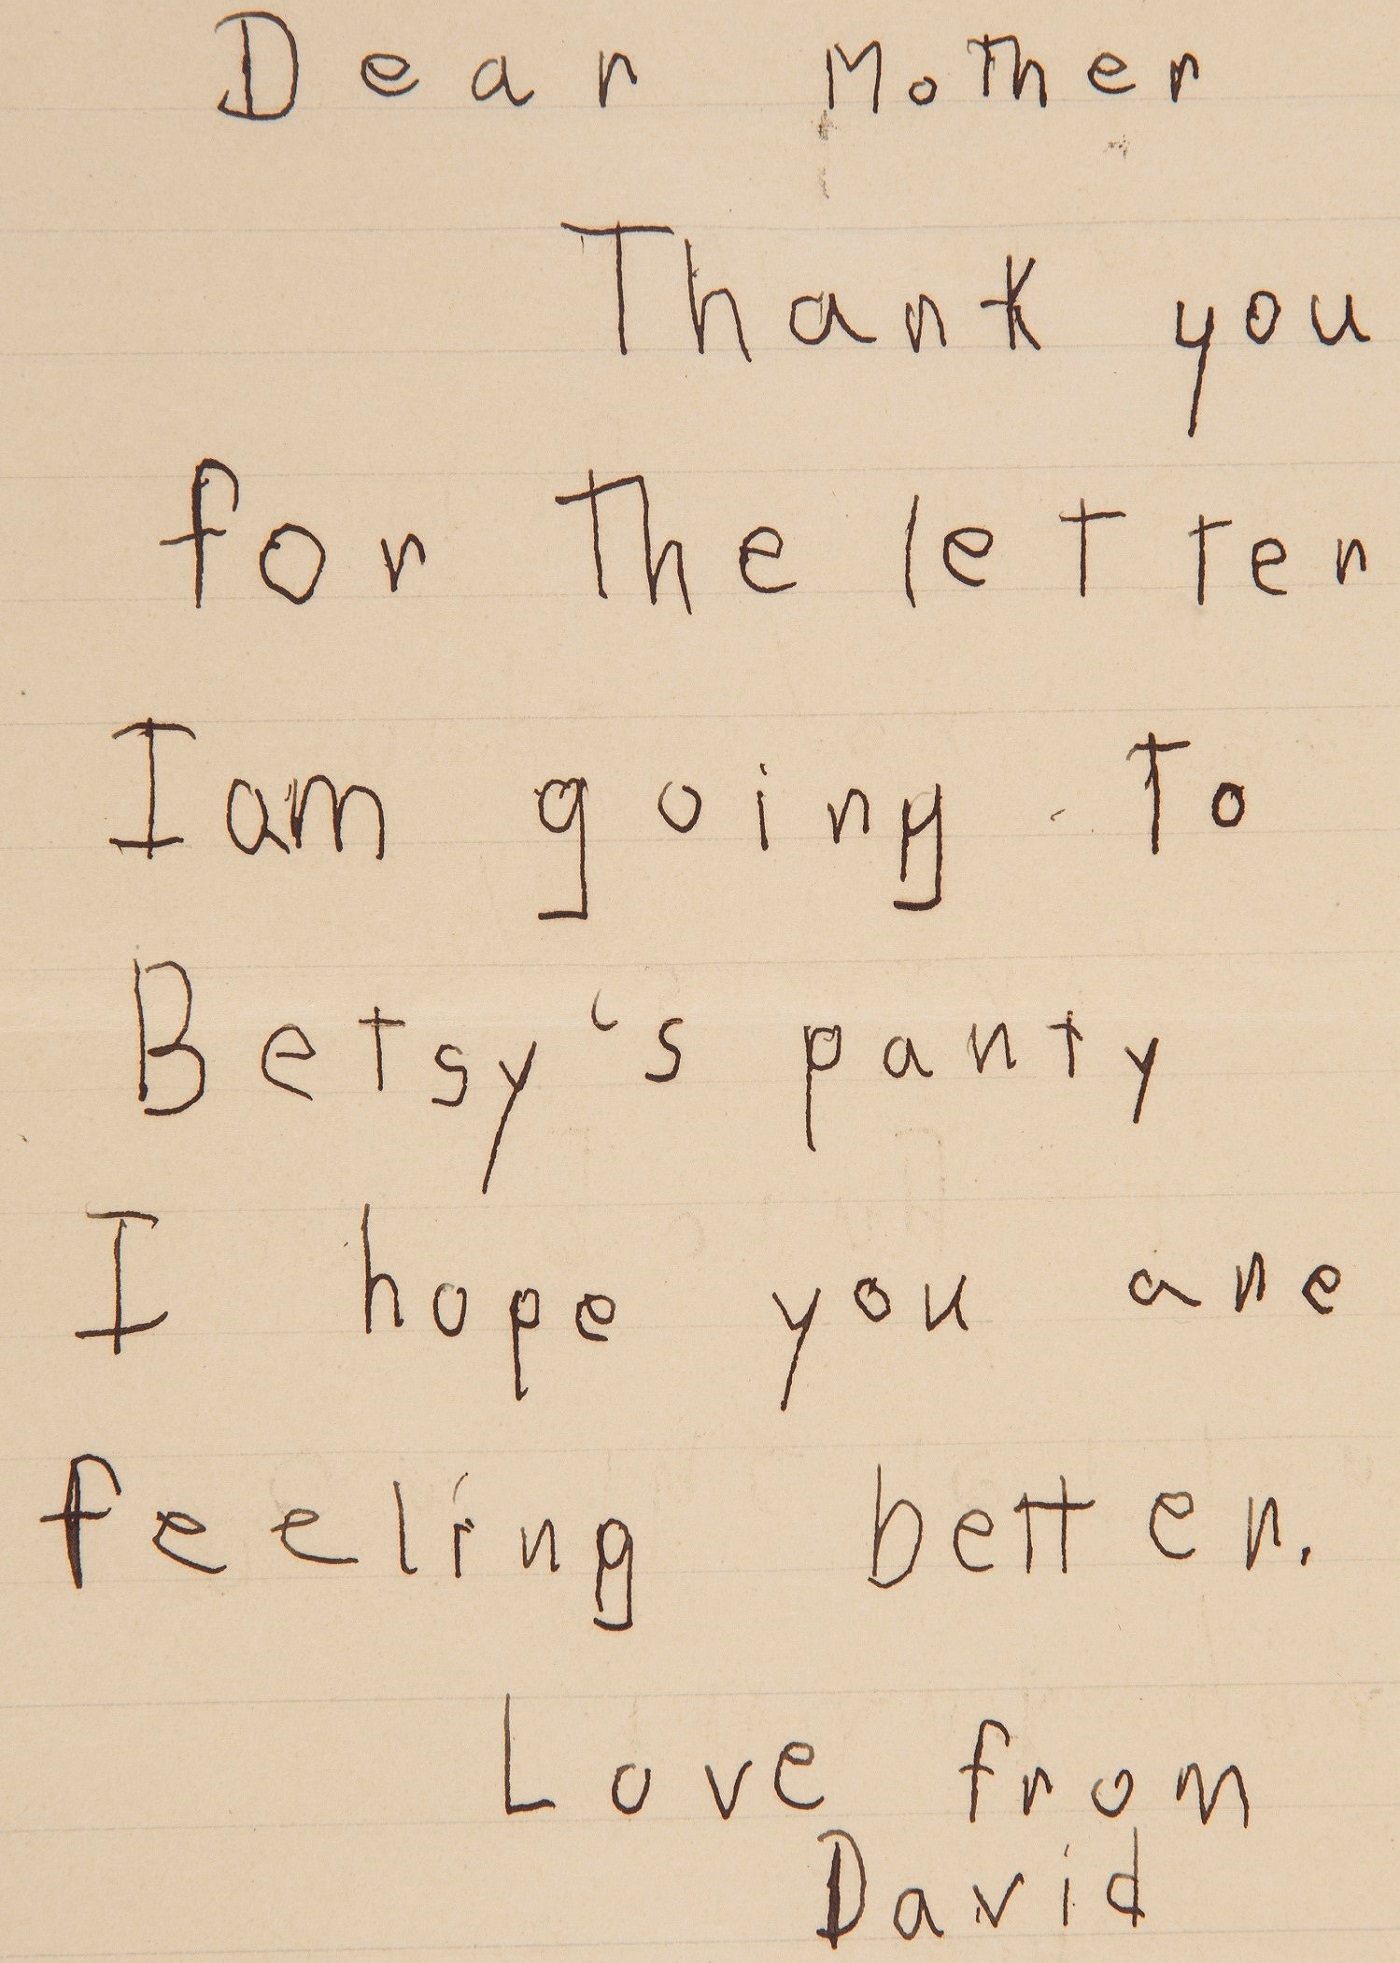 Dear Mother
Thank you
for the letter
I am going to
Betsy's party
I hope you are
feeling better.
Love from
David